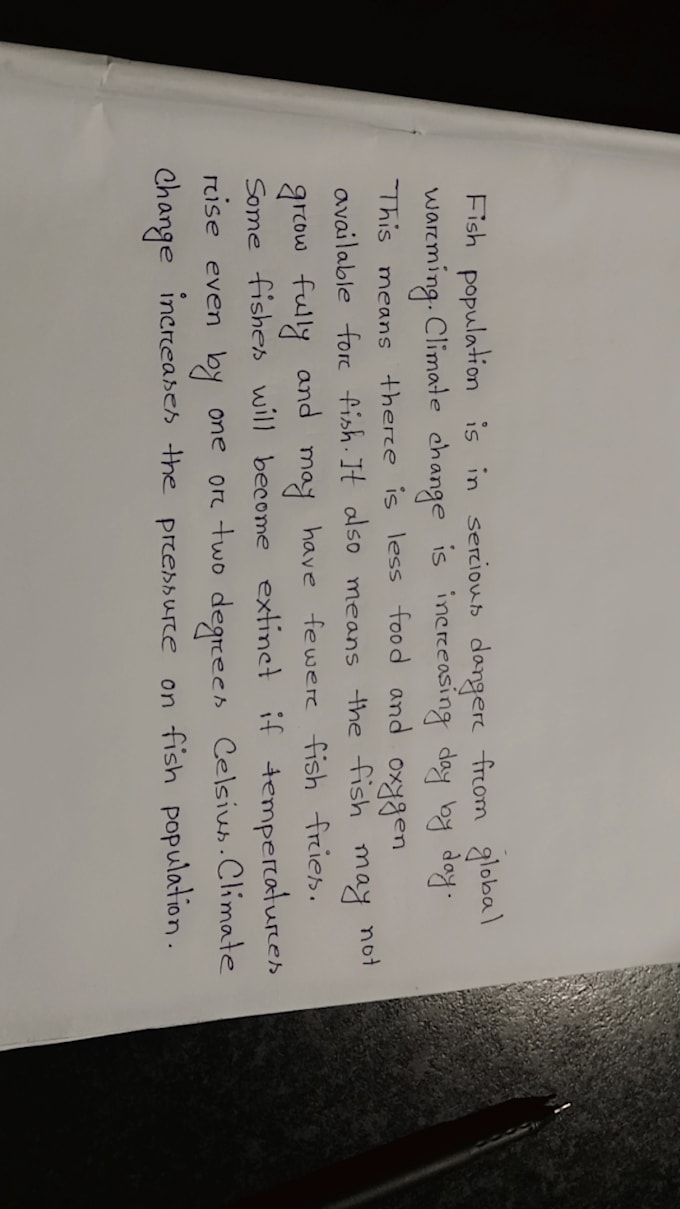 Fish population is in serious danger from global
warming. Climate change is increasing day by day.
This means there is less food and oxygen
available for fish. It also means the fish may not
grow fully and may have fewer fish fries.
Some fishes will become extinct if temperatures
rise even by one or two degrees Celsius. Climate
change increases the pressure on fish population.